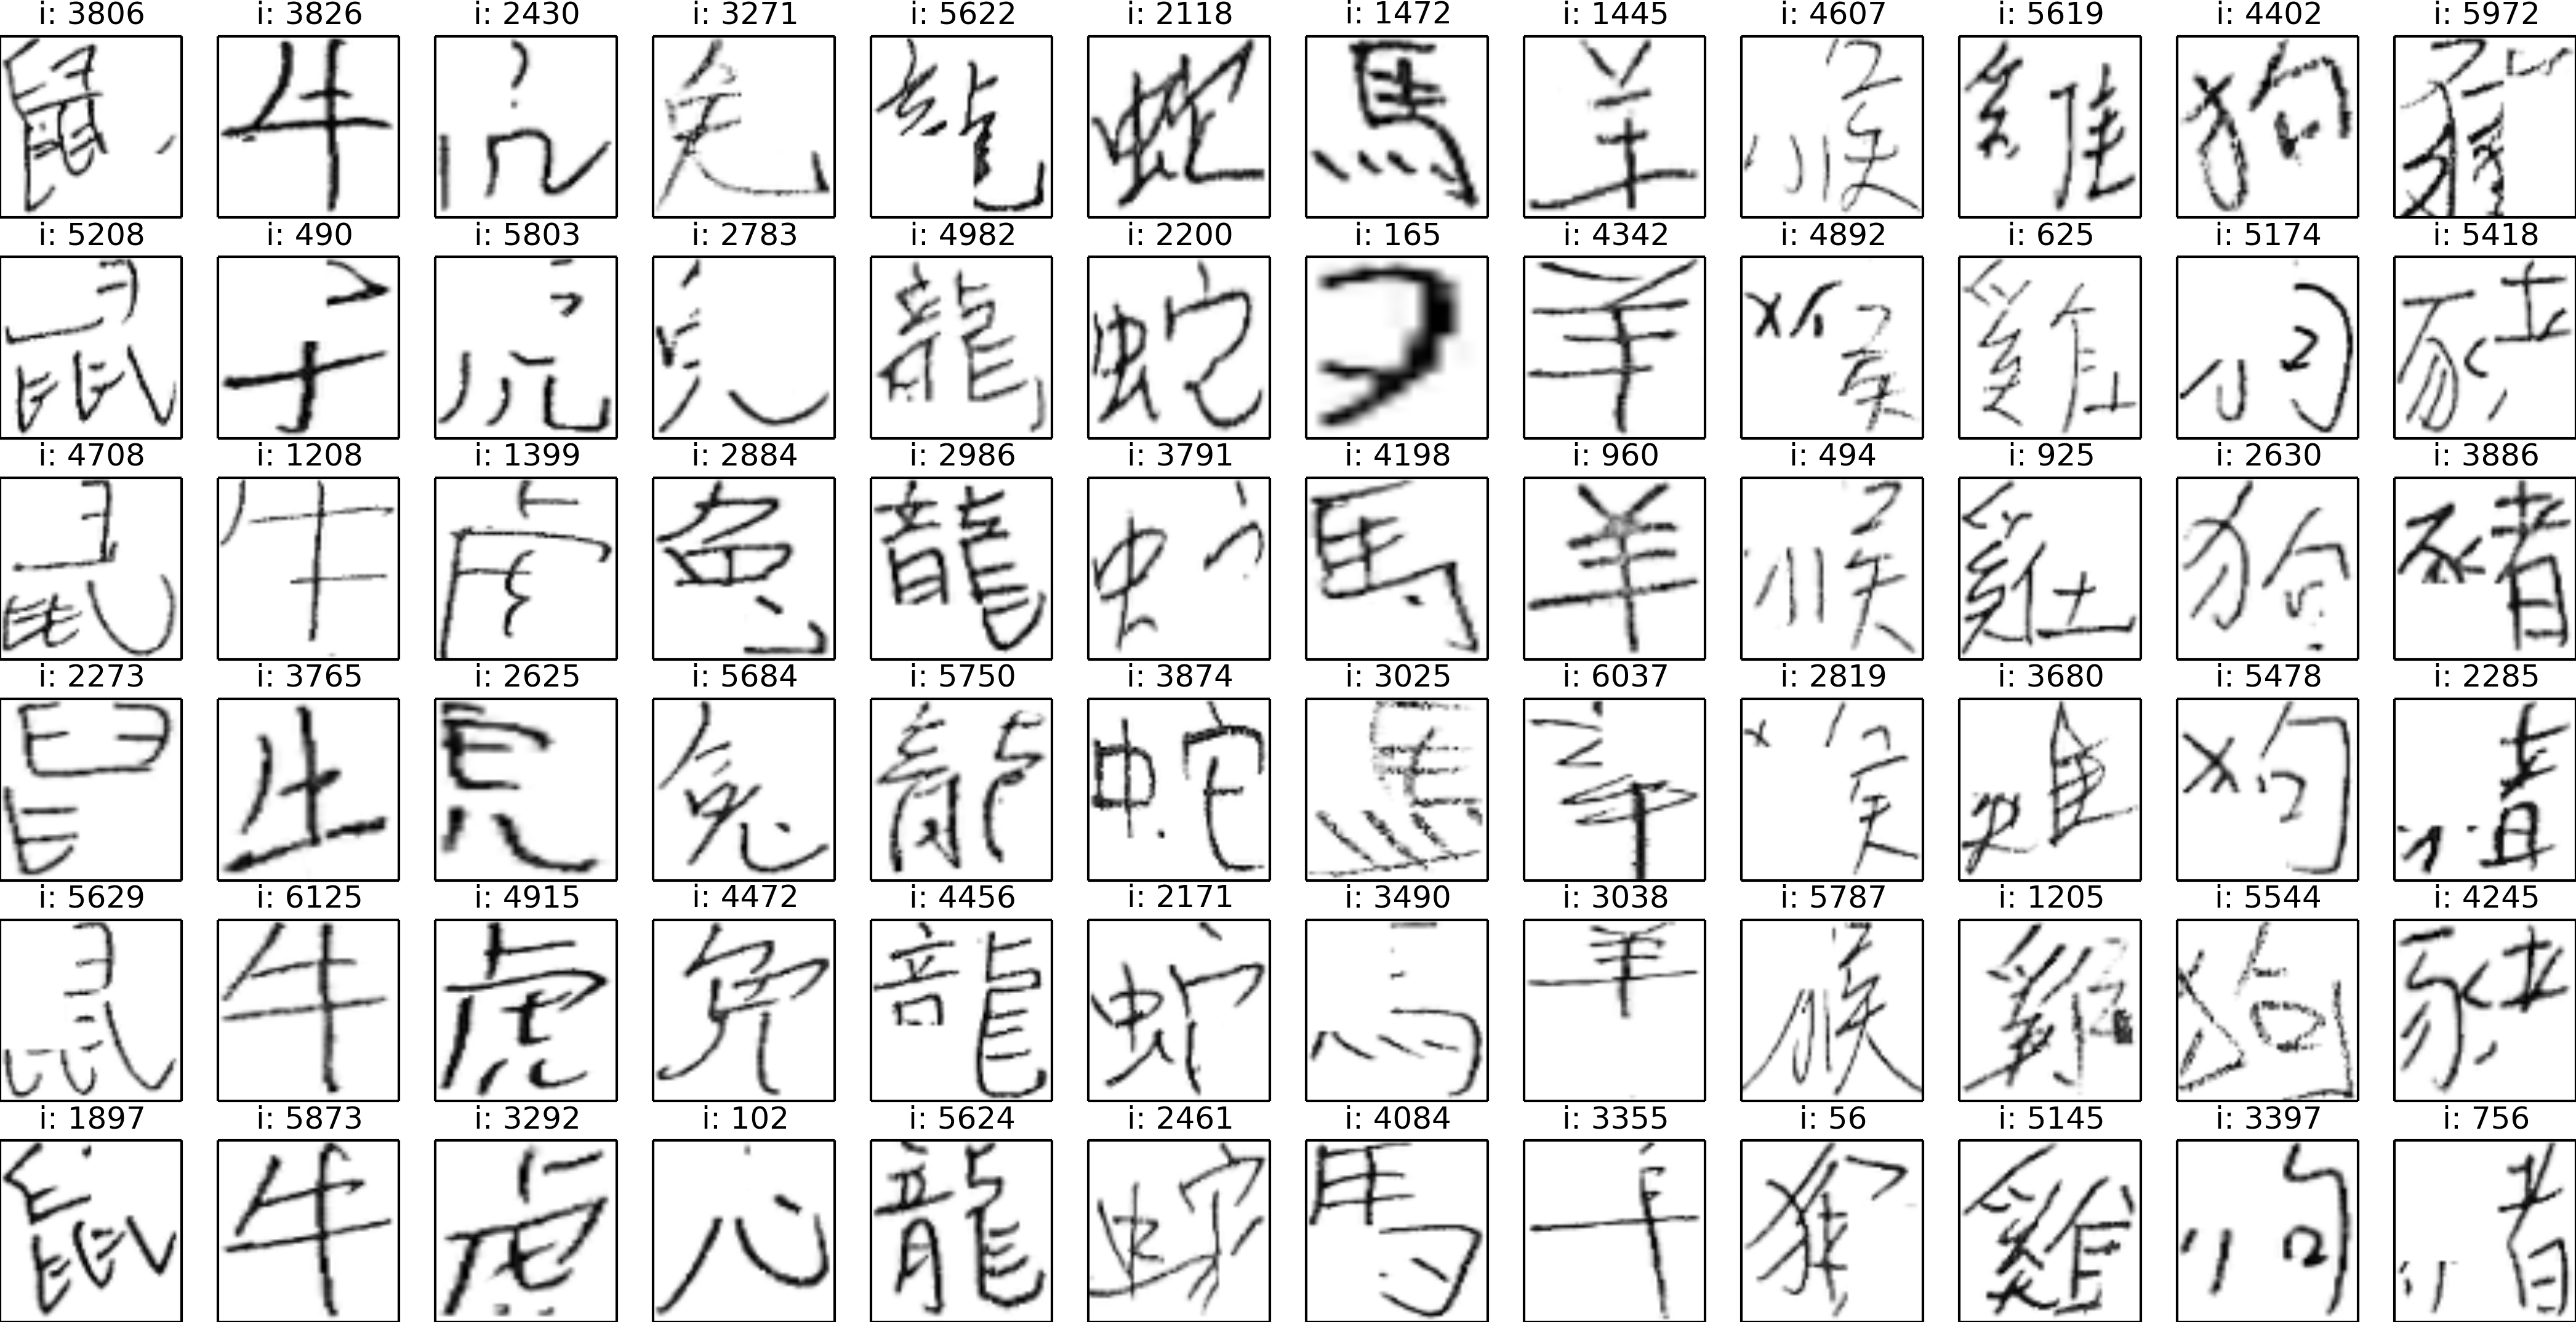 i: 3806 i: 3826 i: 2430 i: 3271 i: 5622 i: 2118 i: 1472 i: 1445 i: 4607 i: 5619 i: 4402 i: 5972
鼠 牛 兔 龍 蛇 馬 羊 猴 雞 狗
i: 5208 i: 490 i: 5803 i: 2783 i: 4982 i: 2200 i: 165 i: 4342 i: 4892 i: 625 i: 5174 i: 5418
鼠 龍 蛇 羊 猴 雞
i: 4708 i: 1208 i: 1399 i: 2884 i: 2986 i: 3791 i: 4198 i: 960 i: 494 i: 925 i: 2630 i: 3886
鼠 牛 兔 龍 馬 羊 猴 雞 狗 豬
i: 2273 i: 3765 i: 2625 i: 5684 i: 5750 i: 3874 i: 3025 i: 6037 i: 2819 i: 3680 i: 5478 i: 2285
兔 龍 蛇 羊 猴 狗
i: 5629 i: 6125 i: 4915 i: 4472 i: 4456 i: 2171 i: 3490 i: 3038 i: 5787 i: 1205 i: 5544 i: 4245
鼠 牛 虎 龍 羊 猴 雞 狗
i: 1897 i: 5873 i: 3292 i: 102 i: 5624 i: 2461 i: 4084 i: 3355 i: 56 i: 5145 i: 3397 i: 756
鼠 牛 虎 龍 蛇 馬 猴 雞